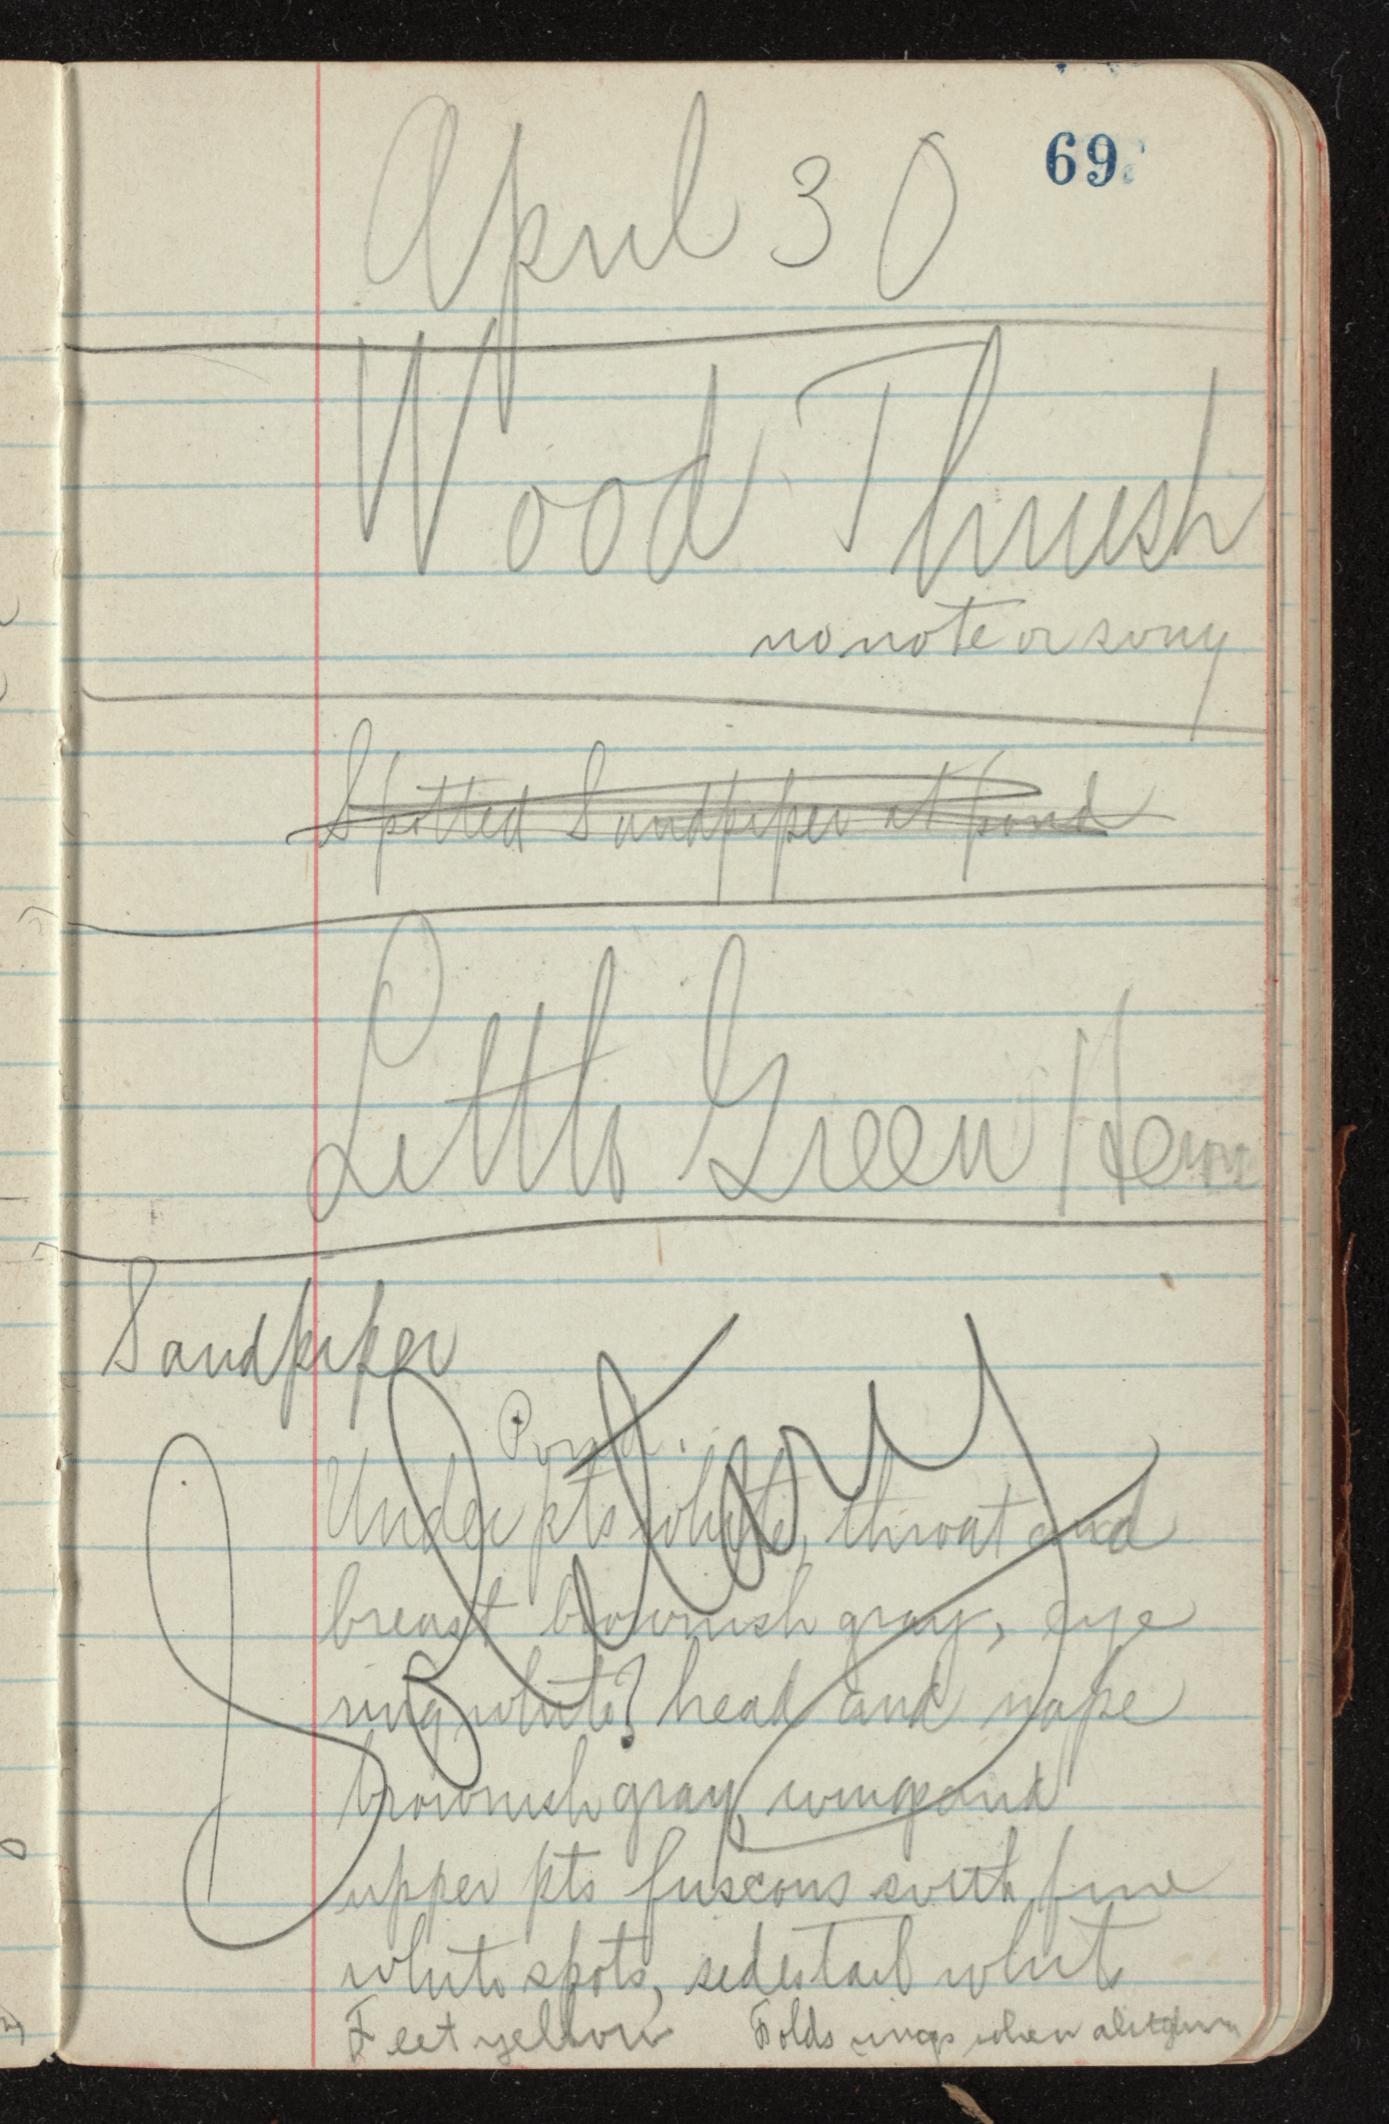 69
April 30
Wood Thrush
no note or song
Spotted Sandpiper at pond
Little Green Heron
Sandpiper
Solitary
Pond.
Under pts white, throat and
breast brownish gray, eye
ring white? head and nape
brownish gray, wings and
upper pts fuscous with fine
white spots, sides tail white
Feet yellow Folds wings when alighting